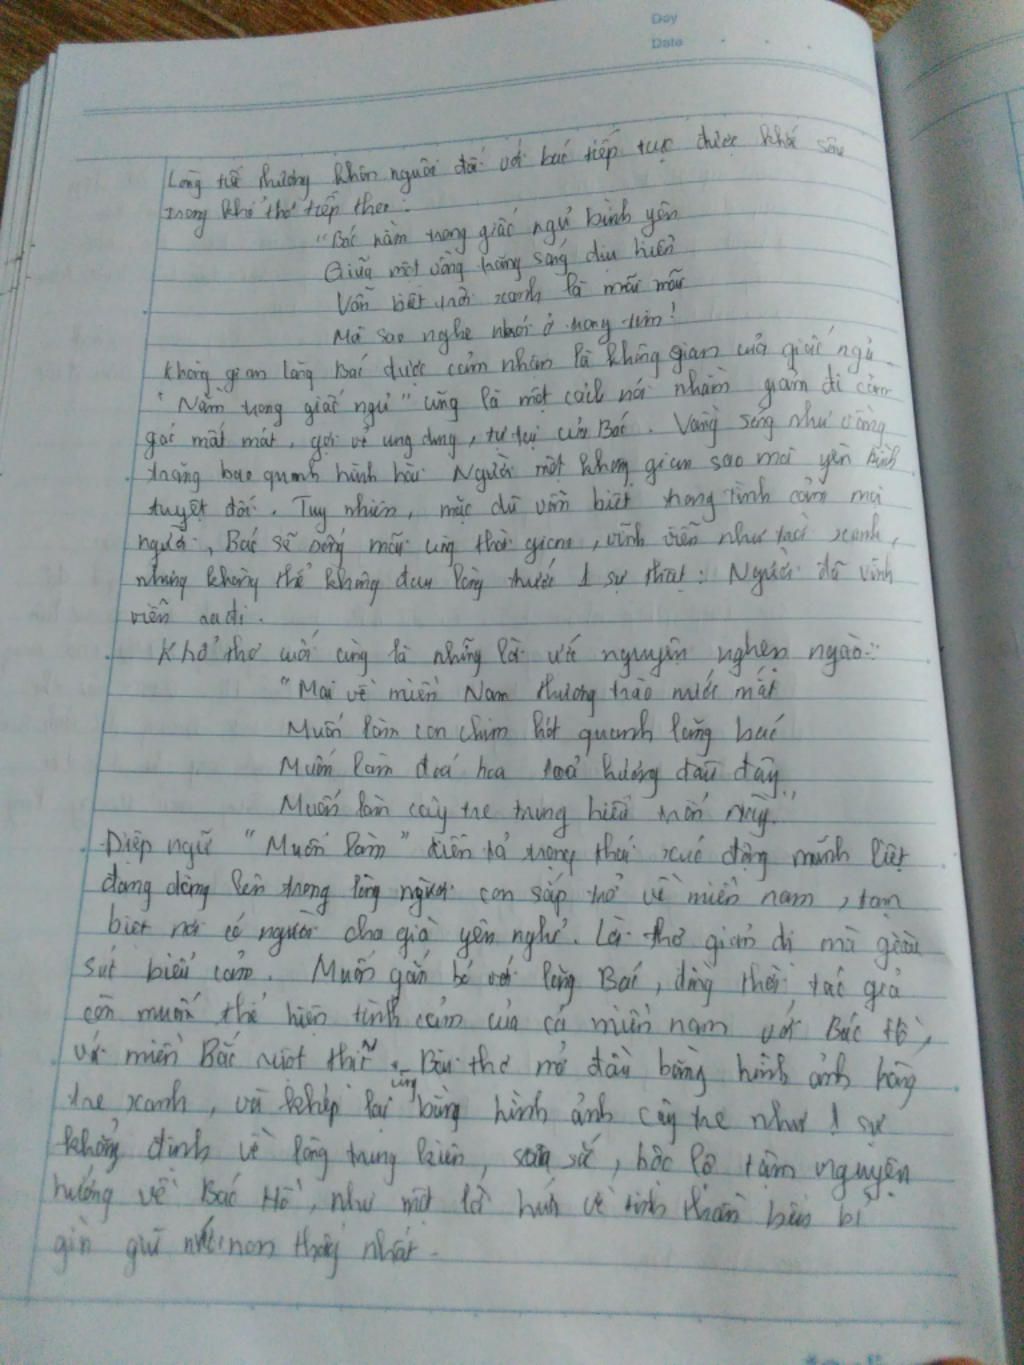 Day
Date
Lòng tiếc thương khôn nguôi đối với bác tiếp tục được khơi sâu
trong khổ thơ tiếp theo:
"Bác nằm trong giấc ngủ bình yên
Giữa một vầng trăng sáng dịu hiền
Vẫn biết trời xanh là mãi mãi
Mà sao nghe nhói ở trong tim!
Không gian lăng Bác được cảm nhận là không gian của giấc ngủ
"Nằm trong giấc ngủ" cũng là một cách nói nhằm giảm đi cảm
giác mất mát, gợi về ung dung, tự tại của Bác. Vầng sáng như vầng
trăng bao quanh hình hài Người một không gian sao mà yên bình
tuyệt đối. Tuy nhiên, mặc dù vẫn biết trong tình cảm mọi
người, Bác sẽ sống mãi cùng thời gian, vĩnh viễn như trời xanh,
nhưng không thể không đau lòng trước 1 sự thật: Người đã vĩnh
viễn ra đi.
Khổ thơ cuối cùng là những lời ước nguyện nghẹn ngào:
"Mai về miền Nam thương trào nước mắt
Muốn làm con chim hót quanh lăng bác
Muốn làm đoá hoa toả hương đâu đây
Muốn làm cây tre trung hiếu chốn này."
Điệp ngữ "Muốn làm" diễn tả trạng thái xúc động mãnh liệt
đang dâng lên trong lòng người con sắp trở về miền nam, tạm
biệt nơi có người cha già yên nghỉ. Lời thơ giản dị mà giàu
sức biểu cảm. Muốn gắn bó với lăng Bác, đồng thời tác giả
còn muốn thể hiện tình cảm của cả miền nam với Bác Hồ,
với miền Bắc ruột thịt. Bài thơ mở đầu bằng hình ảnh hàng
tre xanh, và khép lại cũng bằng hình ảnh cây tre như 1 sự
khẳng định về lòng trung kiên, son sắt, bộc lộ tâm nguyện
hướng về Bác Hồ, như một lời hứa về tinh thần bền bỉ
gìn giữ nước non thống nhất.